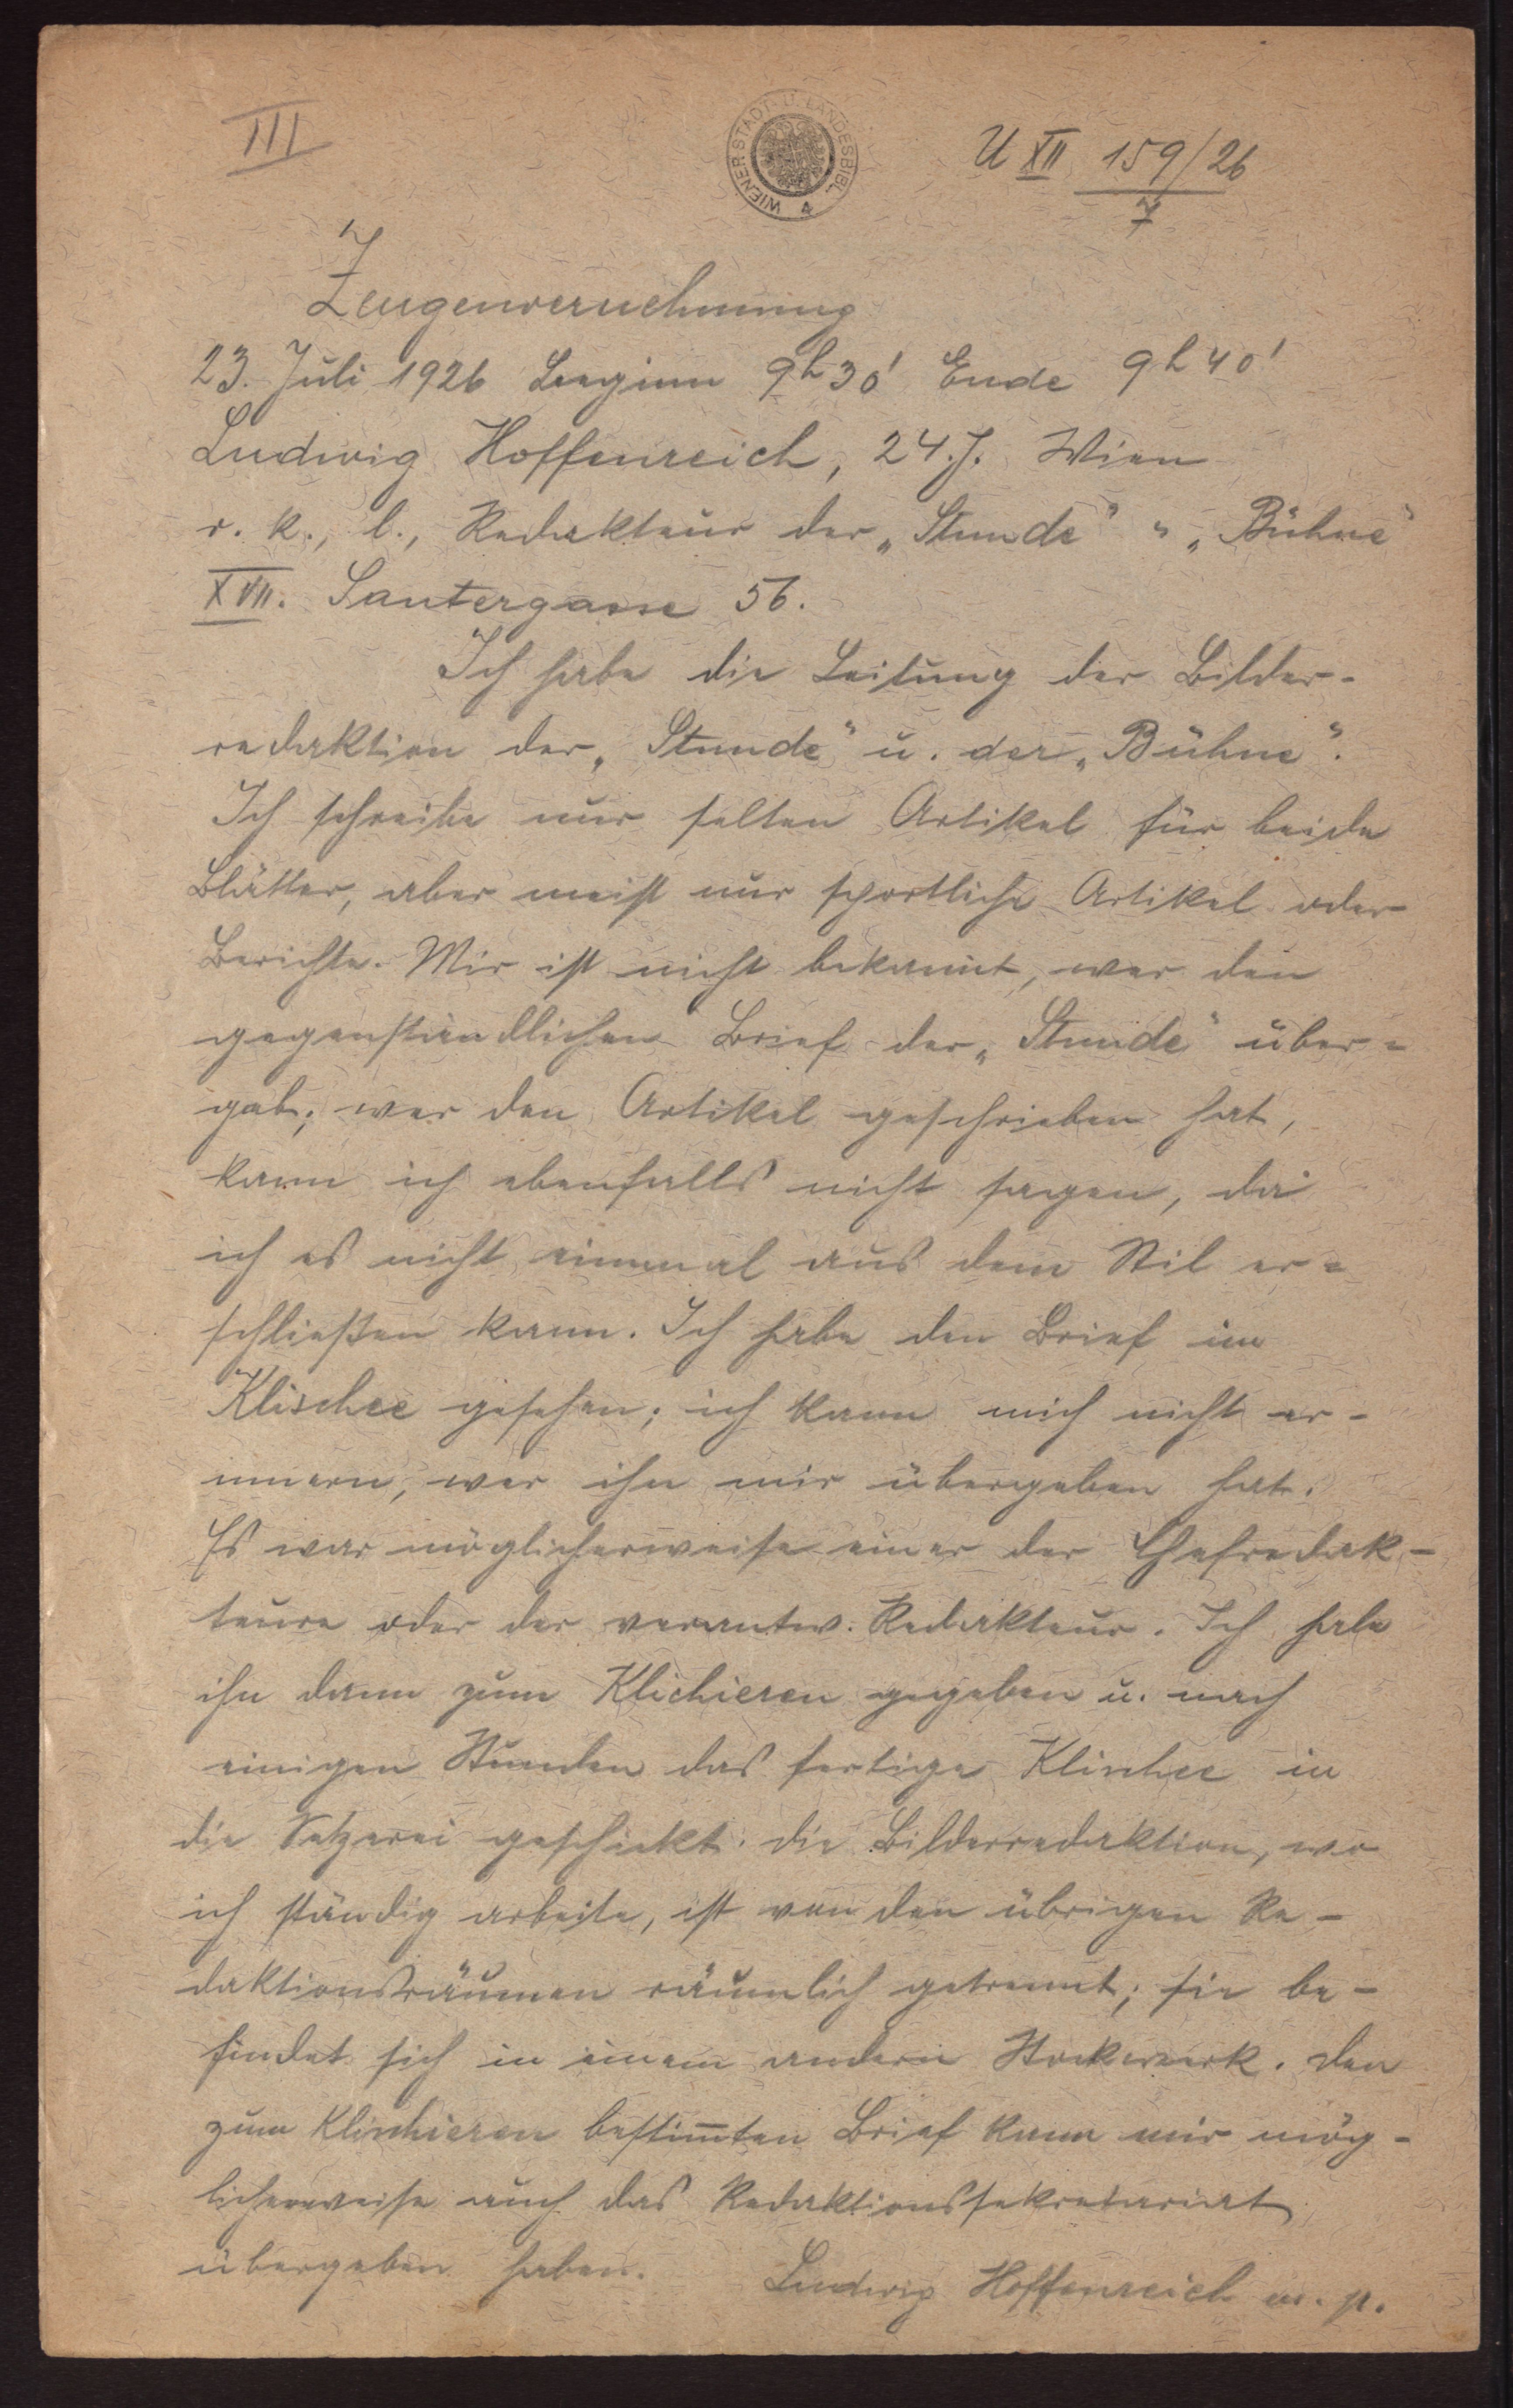 III
WIENER STADT- U. LANDESBIBL.
4
U XII 159/26
7
Zeugenvernehmung
23. Juli 1926 Beginn 9h30' Ende 9h40'
Ludwig Hoffenreich, 24. J. Wien
r. k., l., Redakteur der „Stunde" u „Bühne"
XVII. Sautergasse 56.
Ich habe die Leitung der Bilder-
redaktion der „Stunde" u. der „Bühne".
Ich schreibe nur selten Artikel für beide
Blätter, aber meist nur sportliche Artikel oder
Berichte. Mir ist nicht bekannt, wer den
gegenständlichen Brief der „Stunde" über-
gab; wer den Artikel geschrieben hat,
kann ich ebenfalls nicht sagen, da
ich es nicht einmal aus dem Stil er-
schließen kann. Ich habe den Brief im
Klischee gesehen; ich kann mich nicht er-
innern, wer ihn mir übergeben hat.
Es war möglicherweise einer der Chefredak-
teure oder der verantw. Redakteur. Ich habe
ihn dann zum Klichieren gegeben u. nach
einigen Stunden das fertige Klischee in
die Setzerei geschickt. Die Bilderredaktion, wo
ich ständig arbeite, ist von den übrigen Re-
daktionsräumen räumlich getrennt; sie be-
findet sich in einem andern Stockwerk. Den
zum Klischieren bestim̅ten Brief kann mir mög-
licherweise auch das Redaktionssekretariat
übergeben haben.
Ludwig Hoffenreich m. p.